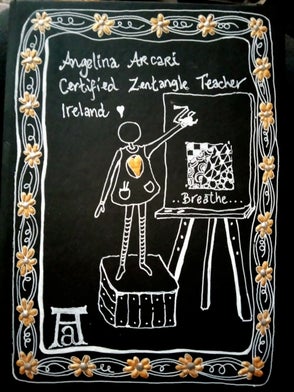 Angelina Arcari
Certified Zentangle Teacher
Ireland ♥
..Breathe...